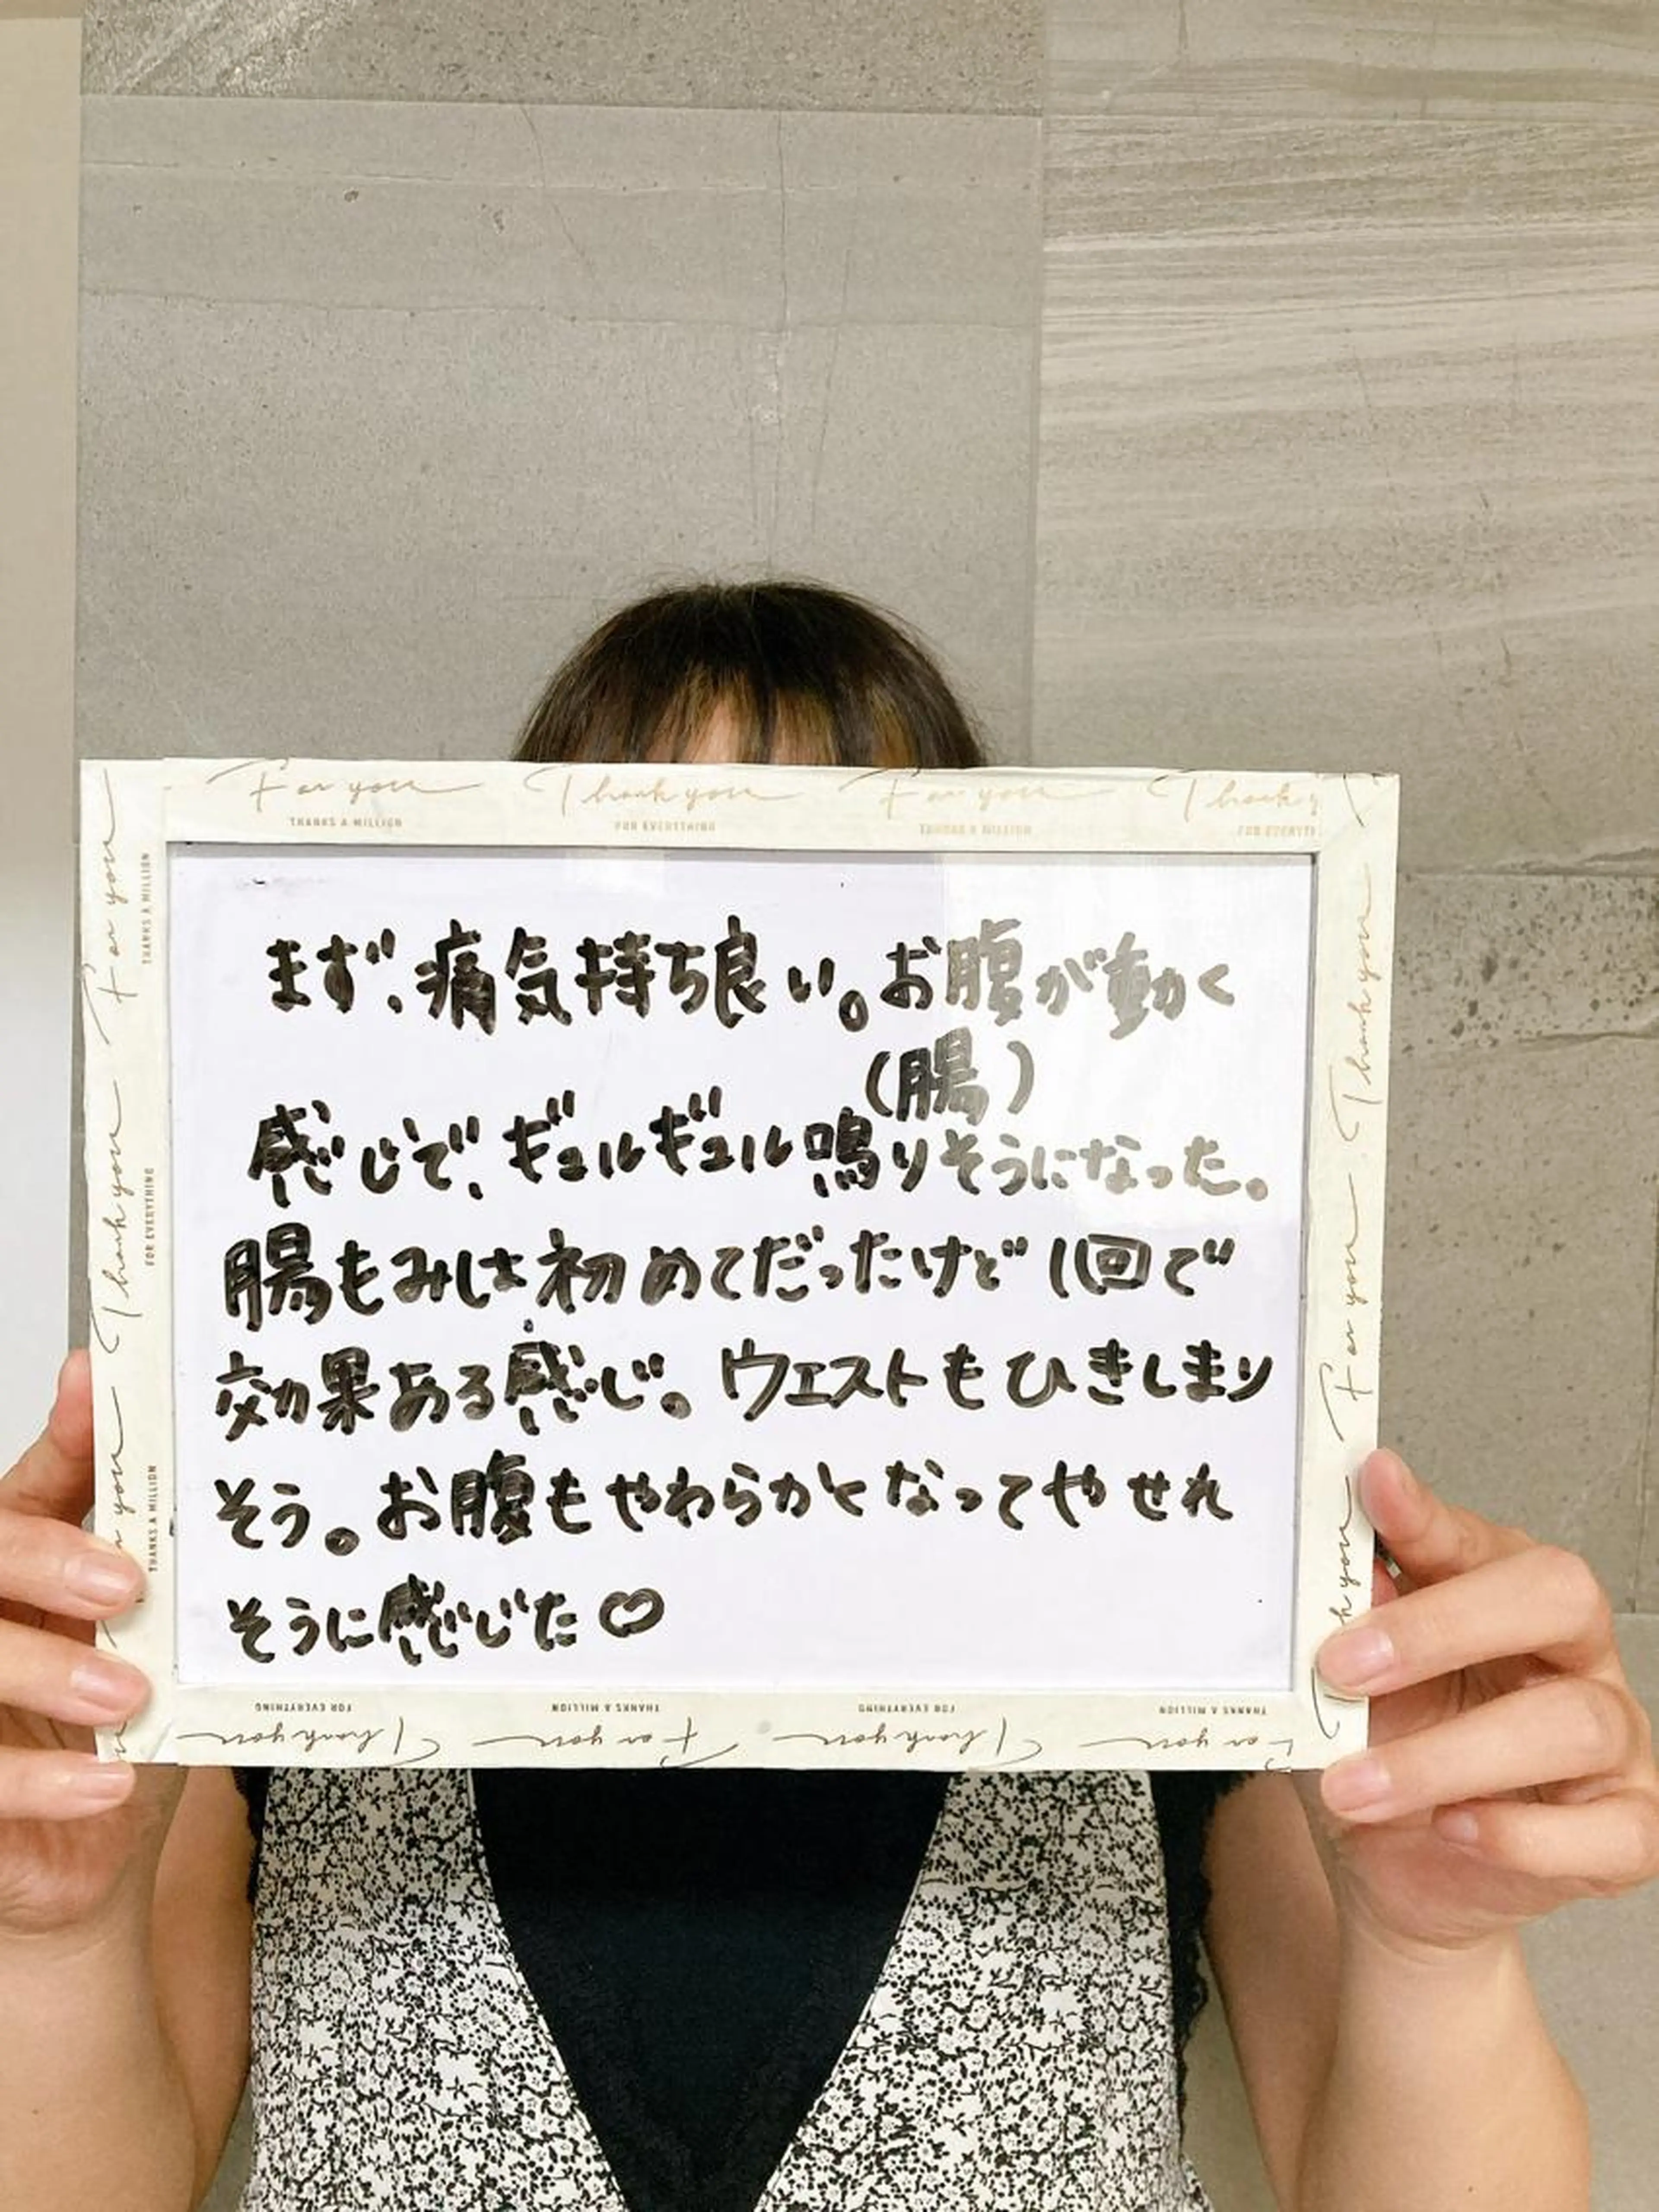 For you Thank you For you Thank y
THANKS A MILLION FOR EVERYTHING THANKS A MILLION FOR EVERYTHI
まず、痛気持ち良い。お腹が動く
(腸)
感じで、ギュルギュル鳴りそうになった。
腸もみは初めてだったけど1回で
効果ある感じ。ウエストもひきしまり
そう。お腹もやわらかくなってやせれ
そうに感じた♡
For you Thank you
THANKS A MILLION FOR EVERYTHING THANKS A MILLION
Thank you For you
FOR EVERYTHING THANKS A MILLION FOR EVERYTHING THANKS A MILLION
Thank you For you Thank you For you